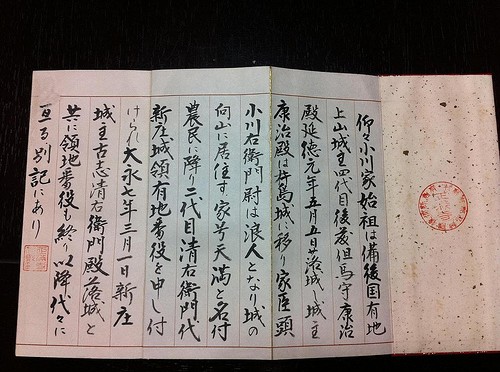 仰々小川家始祖は備後国有地
上山城主四代目後藤但馬守康治
殿延徳元年五月五日落城し城主
康治殿は杵島城に移り家臣頭
小川右衛門尉は浪人となり城の
向山に居住す家号天満と名付
農民に降り二代目清右衛門代
新庄城領有地番役を申し付
けられ大永七年三月一日新庄
城主古志清右衛門殿落城と
共に領地番役も終り以降代々に
亘る別記にあり